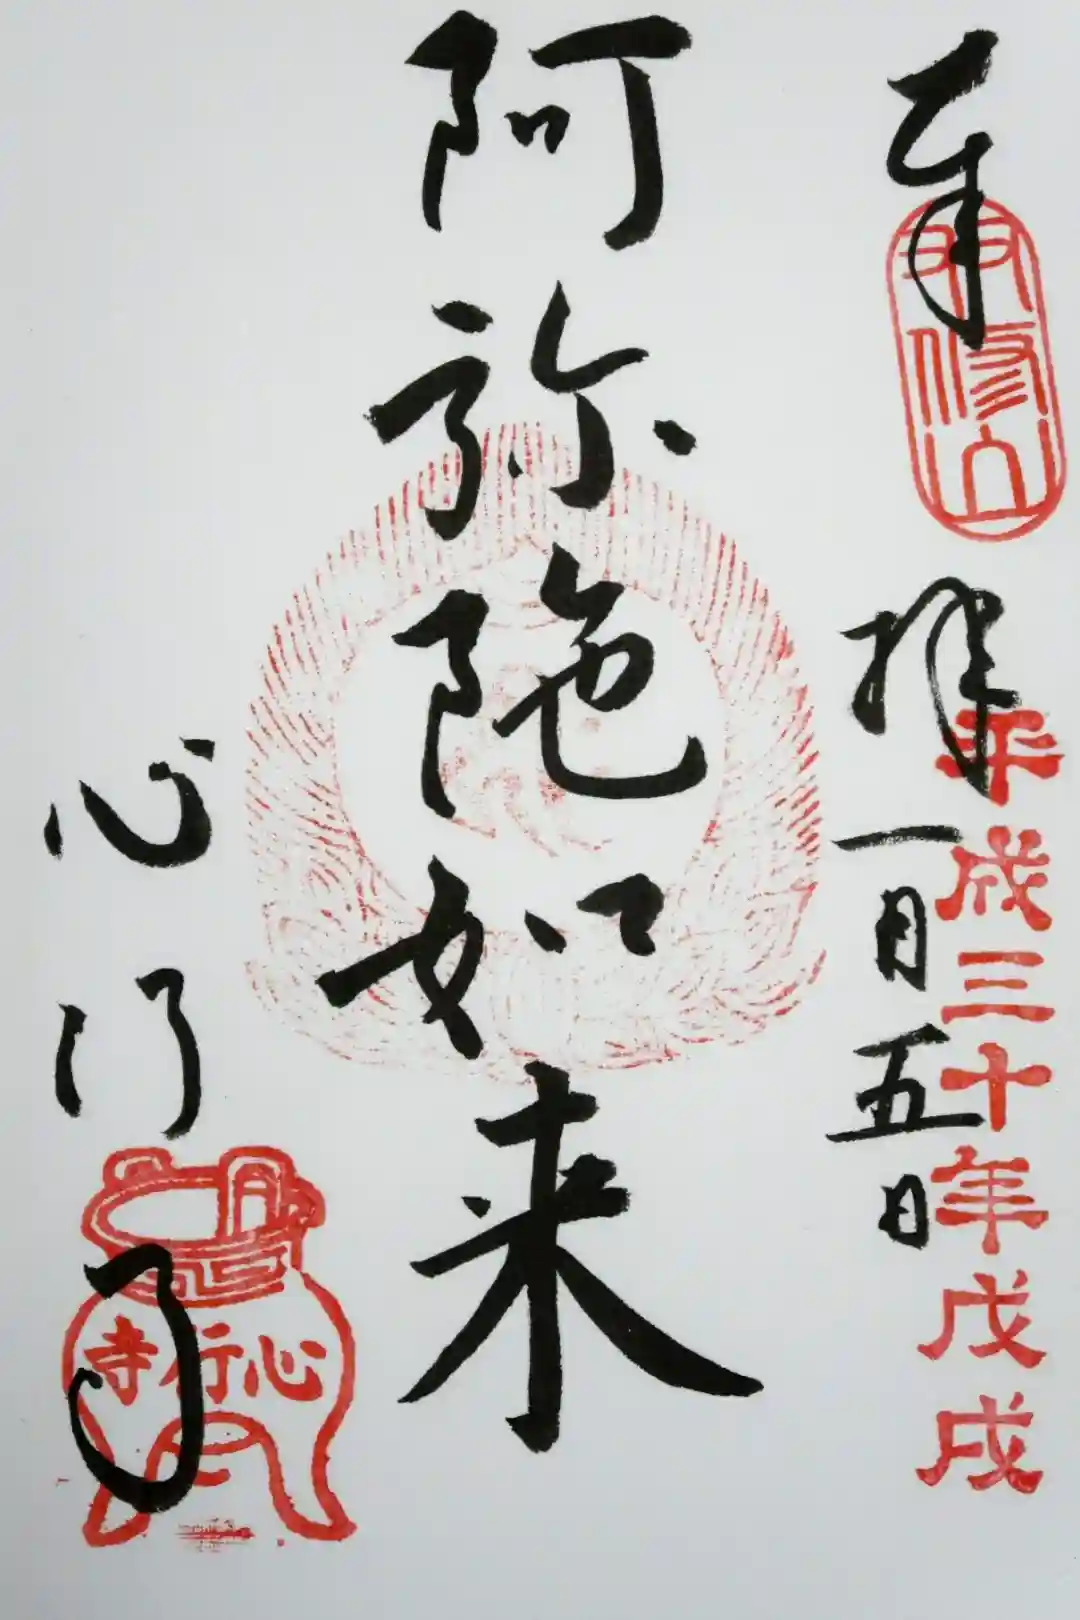 奉拝
一月五日
平成三十年戊戌
阿弥陀如来
心行寺
心行寺